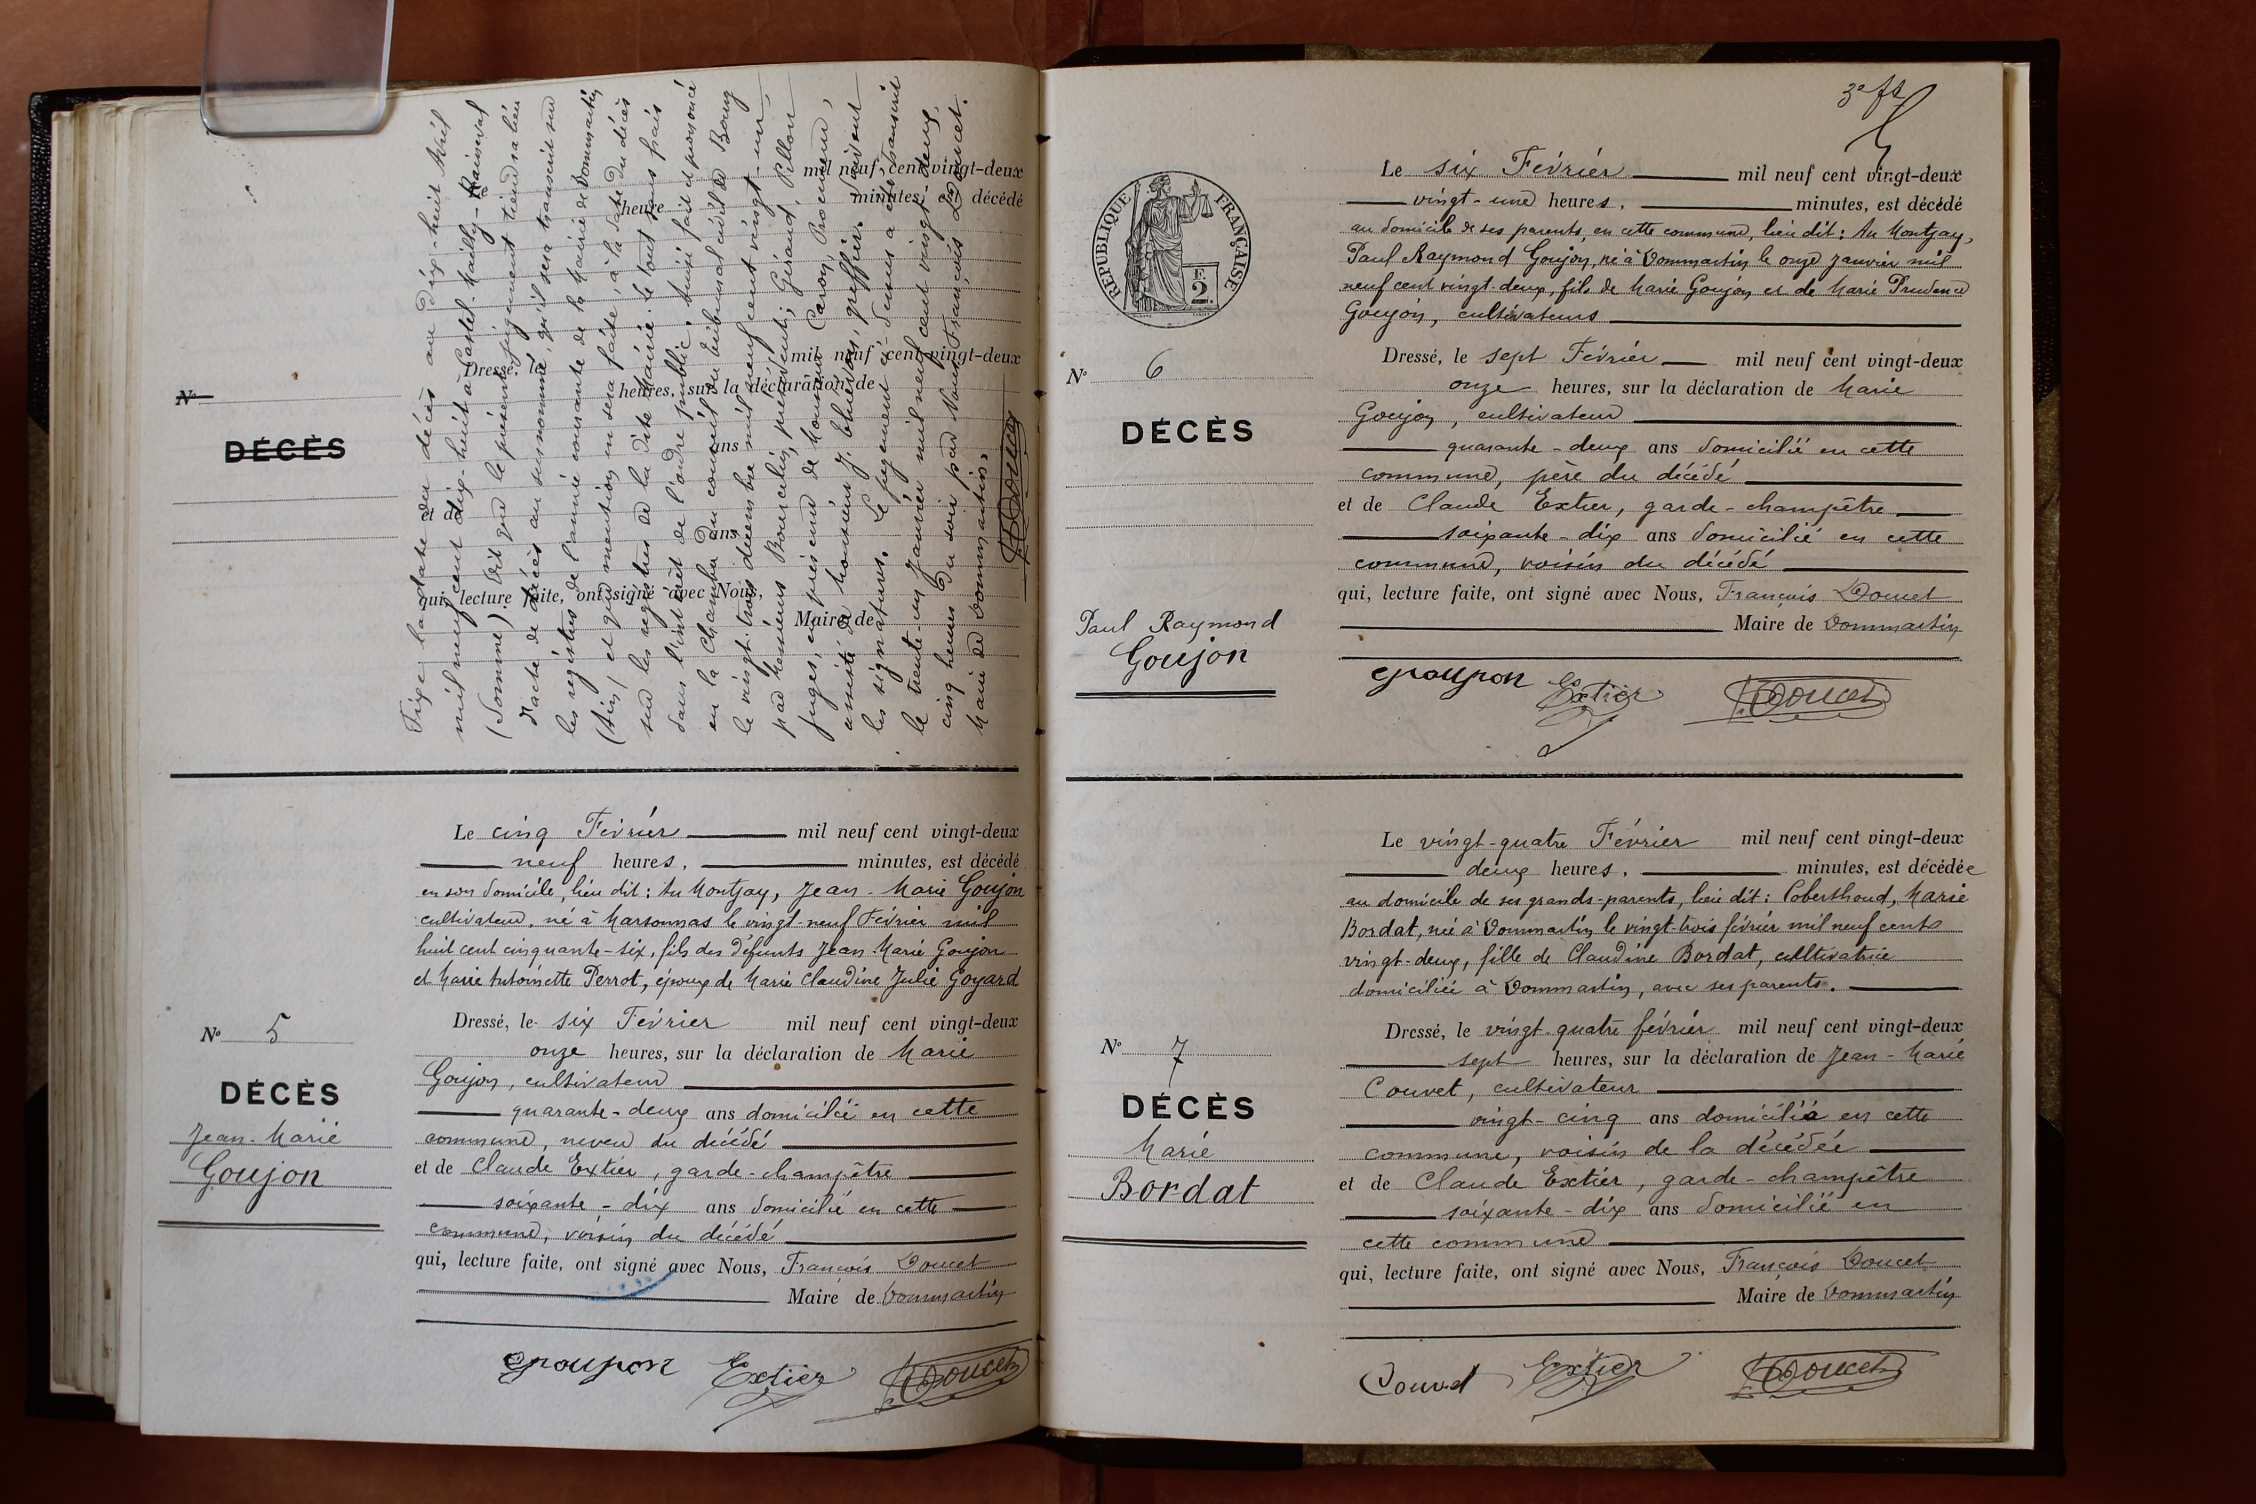 Fixe la date du décès au dix-huit Avril
mil neuf cent dix-huit à Castel-Mailly-Raineval
(Somme). Dit que le présent jugement tiendra lieu
d'acte de décès au susnommé, qu'il sera transcrit sur
les registres de l'année courante de la Mairie de Dommartin
(Ain) et que mention en sera faite, à la date du décès
sur les registres de la dite Mairie. le tout sans frais
dans l'intérêt de l'ordre public. Ainsi fait et prononcé
en la Chambre du conseil du tribunal civil de Bourg
le vingt-trois décembre mil neuf cent vingt-un
par Messieurs président; Giraud, Pillon
juges, en présence de Monsieur Caron, Procureur,
assisté de Monsieur J. greffier. Suivent
les signatures. Le jugement ci-dessus a été transcrit
le trente-un Janvier mil neuf cent vingt deux,
cinq heures du soir par Nous François Doucet
Maire de Dommartin.
Doucet
mil neuf cent vingt-deux
heure
minutes, est décédé
N°
Dressé, le
mil neuf cent vingt-deux
heures, sur la déclaration de
DÉCÈS
ans
et de
ans
qui, lecture faite, ont signé avec Nous,
Maire de
Le cinq Février mil neuf cent vingt-deux
neuf heures, minutes, est décédé
en son domicile, lieu dit: Au Montjay, Jean-Marie Goujon
cultivateur, né à Marsonnas le vingt-neuf Février mil
huit cent cinquante-six, fils des défunts Jean Marie Goujon
et Marie Antoinette Perrot, époux de Marie Claudine Julie Goyard
N° 5
DÉCÈS
Jean-Marie
Goujon
Dressé, le six Février mil neuf cent vingt-deux
onze heures, sur la déclaration de Marie
Goujon, cultivateur
quarante-deux ans domicilié en cette
commune, neveu du décédé
et de Claude Extier, garde-champêtre
soixante-dix ans domicilié en cette
commune, voisin du décédé
qui, lecture faite, ont signé avec Nous, François Doucet
Maire de Dommartin
Goujon Extier Doucet
3e ft
RÉPUBLIQUE FRANÇAISE
F.
2.
Le six Février mil neuf cent vingt-deux
vingt-une heures, minutes, est décédé
au domicile de ses parents, en cette commune, lieu dit: Au Montjay,
Paul Raymond Goujon, né à Dommartin le onze Janvier mil
neuf cent vingt-deux, fils de Marie Goujon et de Marie Prudence
Goujon, cultivateurs
N° 6
DÉCÈS
Paul Raymond
Goujon
Dressé, le sept Février mil neuf cent vingt-deux
onze heures, sur la déclaration de Marie
Goujon, cultivateur
quarante-deux ans domicilié en cette
commune, père du décédé
et de Claude Extier, garde-champêtre
soixante-dix ans domicilié en cette
commune, voisin du décédé
qui, lecture faite, ont signé avec Nous, François Doucet
Maire de Dommartin
Goujon Extier Doucet
Le vingt-quatre Février mil neuf cent vingt-deux
deux heures, minutes, est décédée
au domicile de ses grands-parents, lieu dit: Coberthoud, Marie
Bordat, née à Dommartin le vingt-trois février mil neuf cent
vingt-deux, fille de Claudine Bordat, cultivatrice
domiciliée à Dommartin, avec ses parents.
N° 7
DÉCÈS
Marie
Bordat
Dressé, le vingt-quatre février mil neuf cent vingt-deux
sept heures, sur la déclaration de Jean-Marie
Couvet, cultivateur
vingt-cinq ans domicilié en cette
commune, voisin de la décédée
et de Claude Extier, garde-champêtre
soixante-dix ans domicilié en
cette commune
qui, lecture faite, ont signé avec Nous, François Doucet
Maire de Dommartin
Couvet Extier Doucet